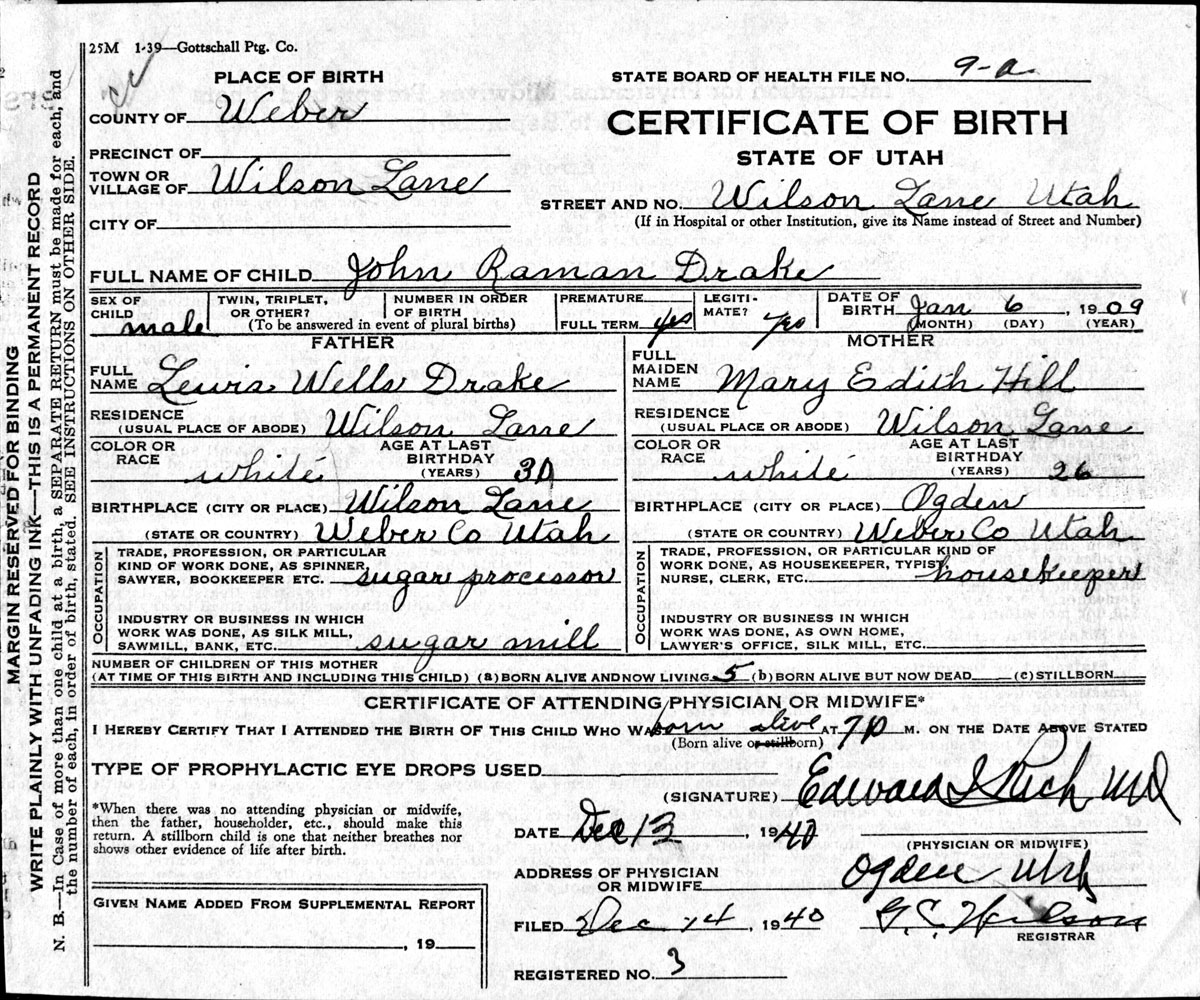 25M 1-39—Gottschall Ptg. Co.
PLACE OF BIRTH
STATE BOARD OF HEALTH FILE NO. 9-a
COUNTY OF Weber
CERTIFICATE OF BIRTH
PRECINCT OF
STATE OF UTAH
TOWN OR VILLAGE OF Wilson Lane
STREET AND NO. Wilson Lane Utah
(If in Hospital or other Institution, give its Name instead of Street and Number)
CITY OF
FULL NAME OF CHILD John Raman Drake
SEX OF CHILD male
TWIN, TRIPLET, OR OTHER?
NUMBER IN ORDER OF BIRTH
(To be answered in event of plural births)
PREMATURE
FULL TERM yes
LEGITIMATE? yes
DATE OF BIRTH Jan 6, 1909
(MONTH) (DAY) (YEAR)
FATHER
FULL NAME Lewis Wells Drake
RESIDENCE (USUAL PLACE OF ABODE) Wilson Lane
COLOR OR RACE white
AGE AT LAST BIRTHDAY (YEARS) 30
BIRTHPLACE (CITY OR PLACE) Wilson Lane
(STATE OR COUNTRY) Weber Co Utah
OCCUPATION
TRADE, PROFESSION, OR PARTICULAR
KIND OF WORK DONE, AS SPINNER,
SAWYER, BOOKKEEPER ETC. sugar processor
INDUSTRY OR BUSINESS IN WHICH
WORK WAS DONE, AS SILK MILL,
SAWMILL, BANK, ETC. sugar mill
MOTHER
FULL MAIDEN NAME Mary Edith Hill
RESIDENCE (USUAL PLACE OR ABODE) Wilson Lane
COLOR OR RACE white
AGE AT LAST BIRTHDAY (YEARS) 26
BIRTHPLACE (CITY OR PLACE) Ogden
(STATE OR COUNTRY) Weber Co Utah
OCCUPATION
TRADE, PROFESSION, OR PARTICULAR KIND OF
WORK DONE, AS HOUSEKEEPER, TYPIST,
NURSE, CLERK, ETC. housekeeper
INDUSTRY OR BUSINESS IN WHICH
WORK WAS DONE, AS OWN HOME,
LAWYER'S OFFICE, SILK MILL, ETC.
NUMBER OF CHILDREN OF THIS MOTHER
(AT TIME OF THIS BIRTH AND INCLUDING THIS CHILD) (a) BORN ALIVE AND NOW LIVING 5 (b) BORN ALIVE BUT NOW DEAD (c) STILLBORN
CERTIFICATE OF ATTENDING PHYSICIAN OR MIDWIFE*
I HEREBY CERTIFY THAT I ATTENDED THE BIRTH OF THIS CHILD WHO WAS born alive AT 7 P M. ON THE DATE ABOVE STATED
(Born alive or stillborn)
TYPE OF PROPHYLACTIC EYE DROPS USED
(SIGNATURE) Edward I Rich MD
*When there was no attending physician or midwife,
then the father, householder, etc., should make this
return. A stillborn child is one that neither breathes nor
shows other evidence of life after birth.
DATE Dec 13, 1940
(PHYSICIAN OR MIDWIFE)
ADDRESS OF PHYSICIAN OR MIDWIFE Ogden Utah
GIVEN NAME ADDED FROM SUPPLEMENTAL REPORT
, 19
FILED Dec 14, 1940 G. C. Wilson
REGISTRAR
REGISTERED NO. 3
MARGIN RESERVED FOR BINDING
WRITE PLAINLY WITH UNFADING INK—THIS IS A PERMANENT RECORD
N. B.—In Case of more than one child at a birth, a SEPARATE RETURN must be made for each, and
the number of each, in order of birth, stated. SEE INSTRUCTIONS ON OTHER SIDE.